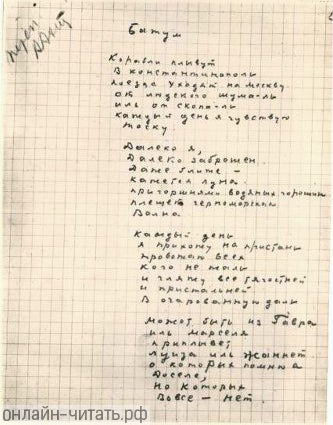 Батум
Корабли плывут
В константинополь
Поезда уходят на москву
от людского шума-ль
иль от скопа-ль
каждый день я чувствую
тоску.
Далеко я,
Далеко заброшен.
Даже ближе –
кажется луна.
пригоршнями водяных горошин
плещет черноморская
Волна.
Каждый день
я прихожу на пристань
провожаю всех
кого не жаль
и гляжу все тягостней
и пристальней
В очарованную даль
может быть из Гавра
иль марселя
приплывет
Луиза иль Жаннет
о которых помню я
Доселе,
но которых
Вовсе – нет.
онлайн-читать.рф